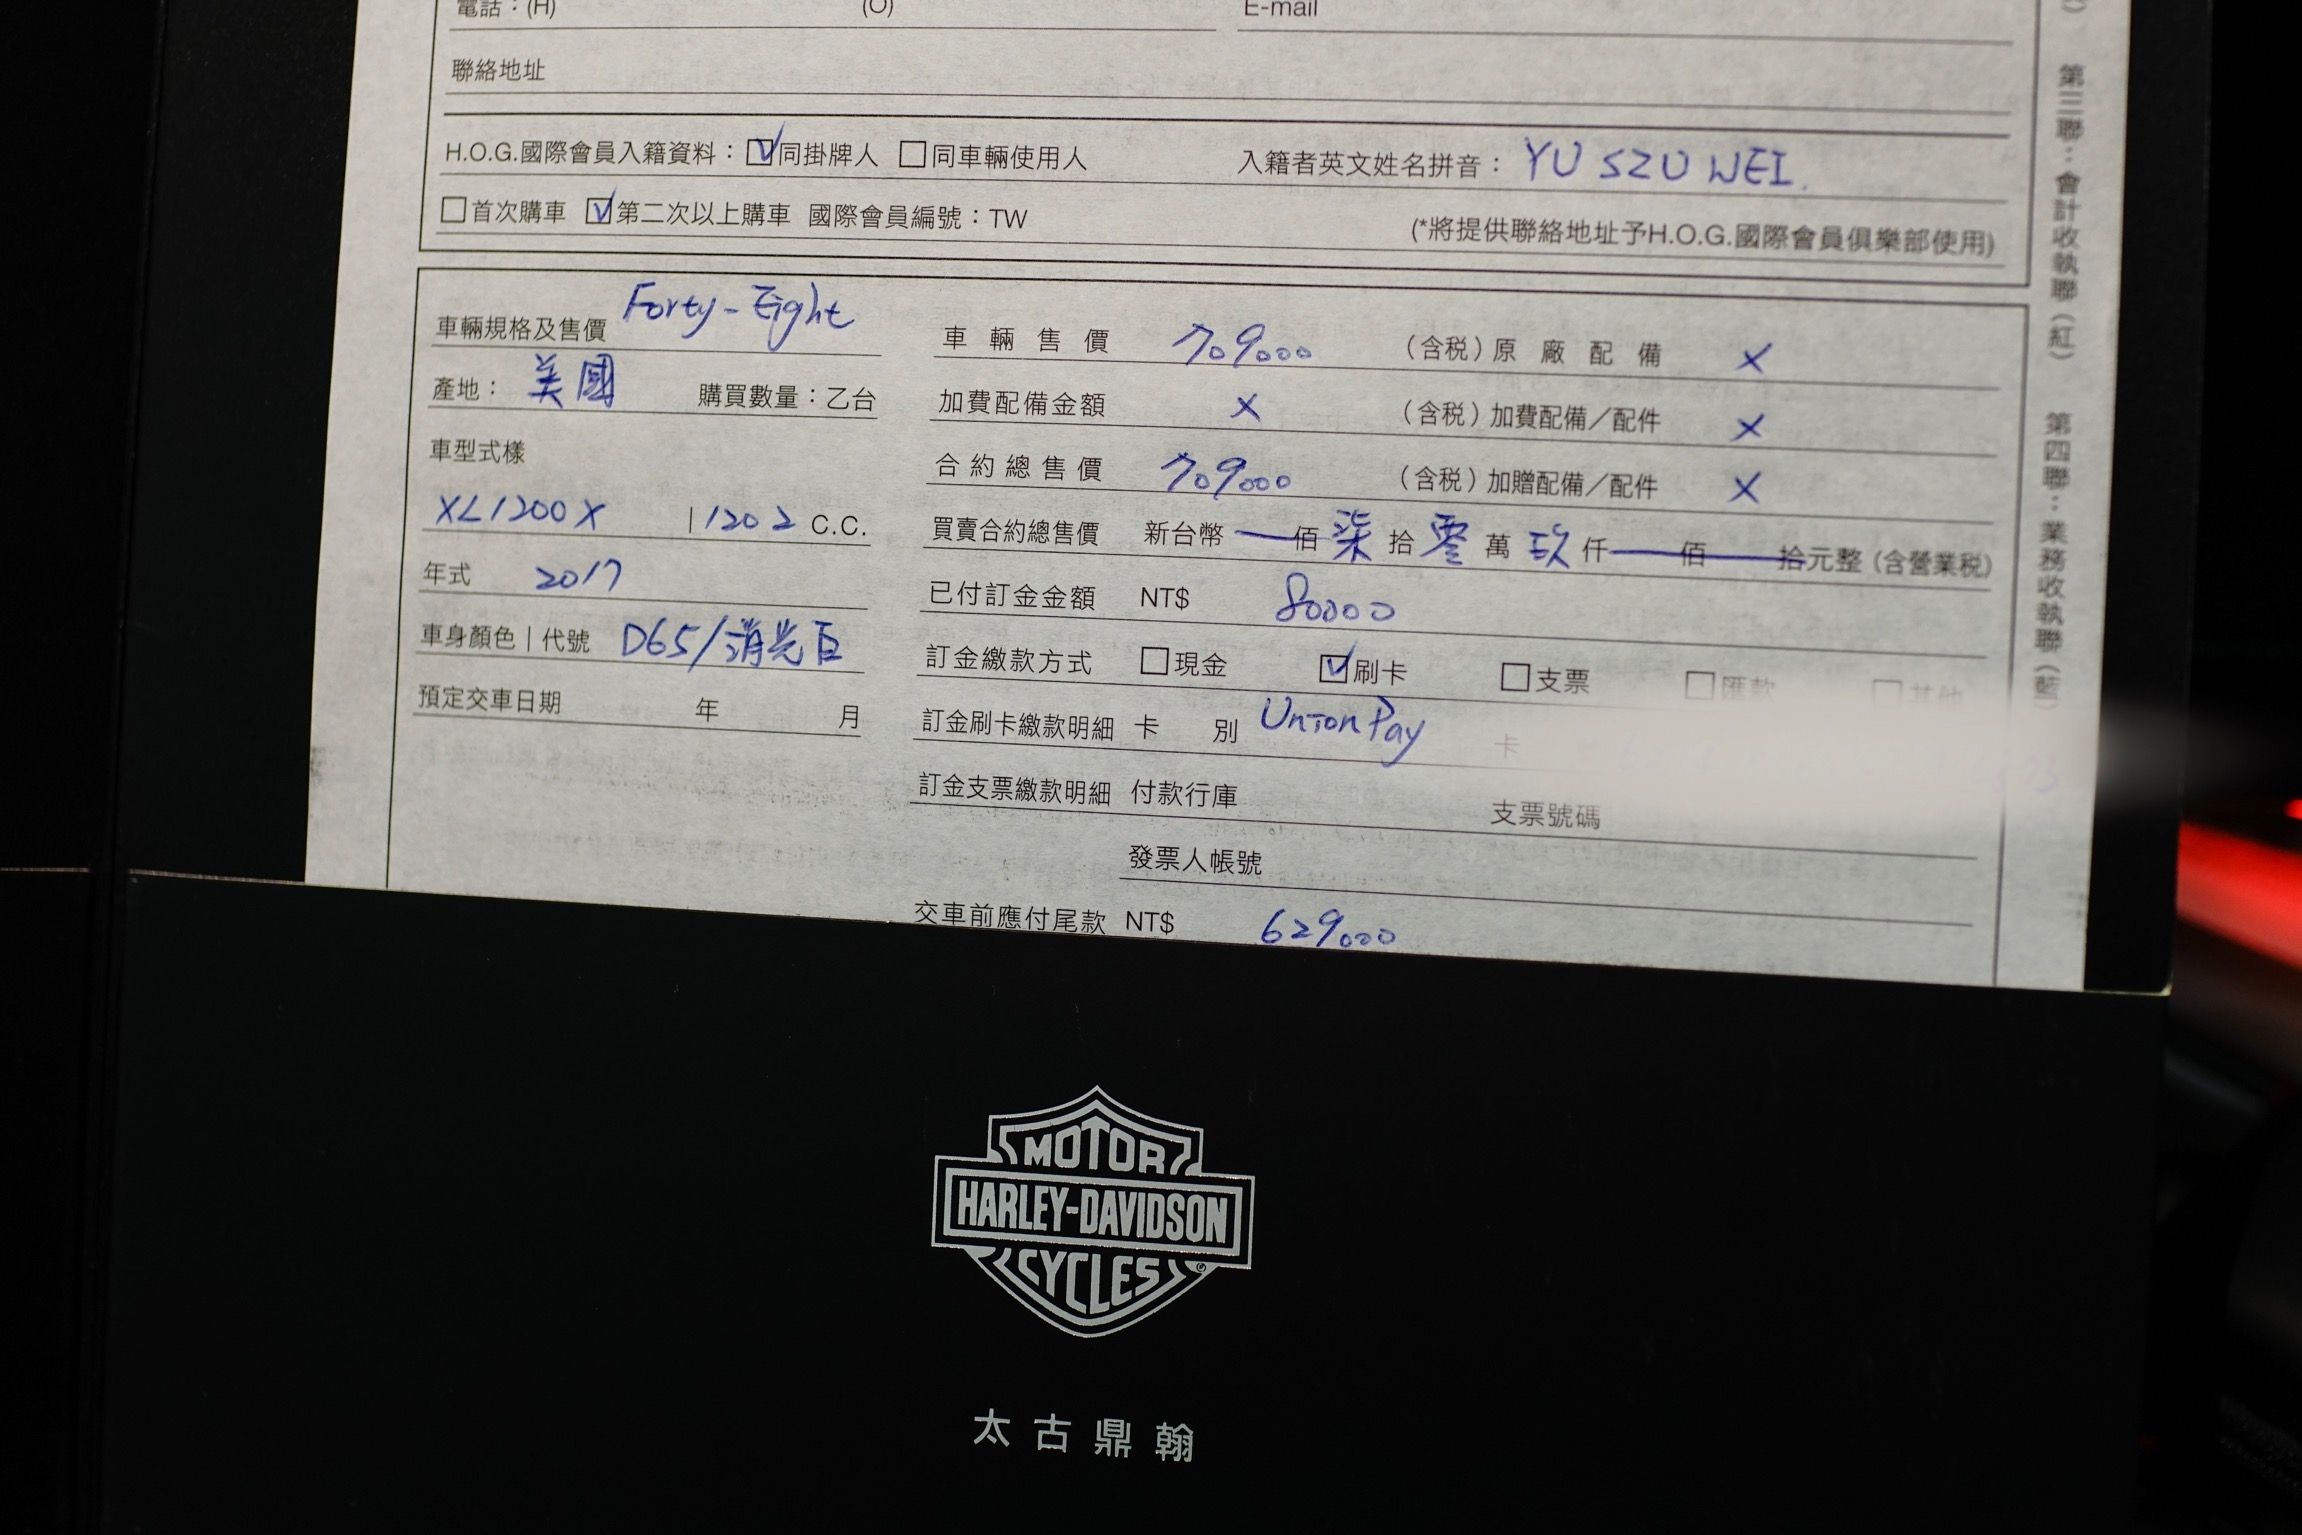 電話：(H) (O) E-mail
聯絡地址
H.O.G.國際會員入籍資料：☑同掛牌人 □同車輛使用人 入籍者英文姓名拼音： YU SZU WEI.
□首次購車 ☑第二次以上購車 國際會員編號：TW (*將提供聯絡地址予H.O.G.國際會員俱樂部使用)
車輛規格及售價 Forty-Eight
產地： 美國 購買數量：乙台
車型式樣
XL1200X | 1202 C.C.
年式 2017
車身顏色｜代號 D65/消光
預定交車日期 年 月
車輛售價 709000 (含稅)原廠配備 X
加費配備金額 X (含稅)加費配備／配件 X
合約總售價 709000 (含稅)加贈配備／配件 X
買賣合約總售價 新台幣 佰 柒 拾 零 萬 玖 仟 佰 拾元整 (含營業稅)
已付訂金金額 NT$ 80000
訂金繳款方式 □現金 ☑刷卡 □支票 □匯款 □其他
訂金刷卡繳款明細 卡別 UnionPay 卡
訂金支票繳款明細 付款行庫 支票號碼
發票人帳號
交車前應付尾款 NT$ 629000
第三聯：會計收執聯（紅） 第四聯：業務收執聯（藍）
MOTOR
HARLEY-DAVIDSON
CYCLES
太古鼎翰